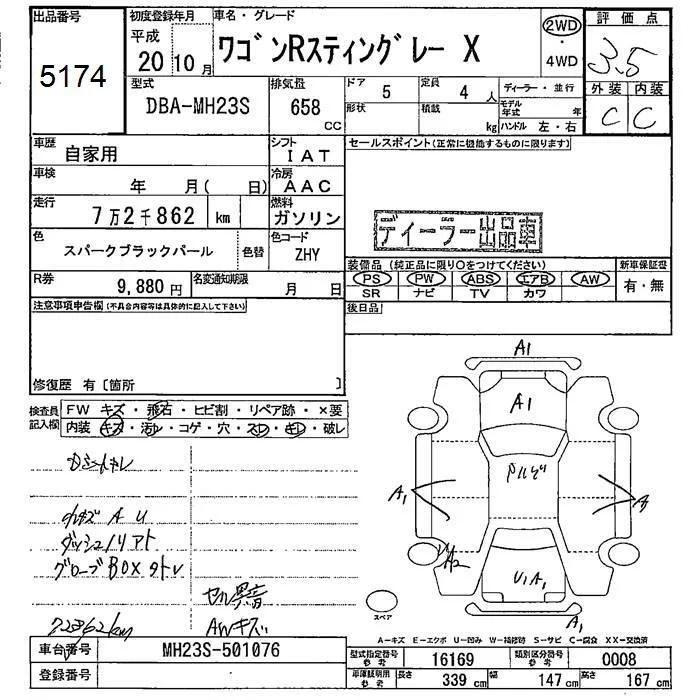 出品番号
5174
初度登録年月
平成
20 10月
車名・グレード
ワゴンRスティングレー X
2WD
・
4WD
評価点
3.5
外装 内装
C C
型式
DBA-MH23S
排気量
658
CC
ドア
5
定員
4 人
形状
積載
kg
ディーラー・並行
モデル
年式 年
ハンドル 左・右
車歴
自家用
シフト
IAT
車検
年 月( 日)
冷房
AAC
走行
7万2千862 km
燃料
ガソリン
色
スパークブラックパール
色替
色コード
ZHY
R券
9,880円
名変通知期限
月 日
セールスポイント(正常に機能するものに限ります)
ディーラー出品車
装備品(純正品に限り○をつけてください)
PS PW ABS エアB AW
SR ナビ TV カワ
新車保証書
有・無
後日品
注意事項申告欄(不具合内容等は具体的に記入して下さい)
修復歴 有〔箇所 〕
検査員
記入欄
FW キズ・飛石・ヒビ割・リペア跡・×要
内装 キズ・汚レ・コゲ・穴・スレ・キレ・破レ
小キズ A U
ダッシュノリアト
グローブBOX
72862km
AWキズ
A1
A1
A1
A2
U1 A1
A1
スペア
A−キズ E−エクボ U−凹み W−補修跡 S−サビ C−腐食 XX−交換済
車台番号
MH23S-501076
登録番号
型式指定番号
参考
16169
類別区分番号
参考
0008
車庫証明用
参考
長さ
339 cm
幅
147 cm
高さ
167 cm